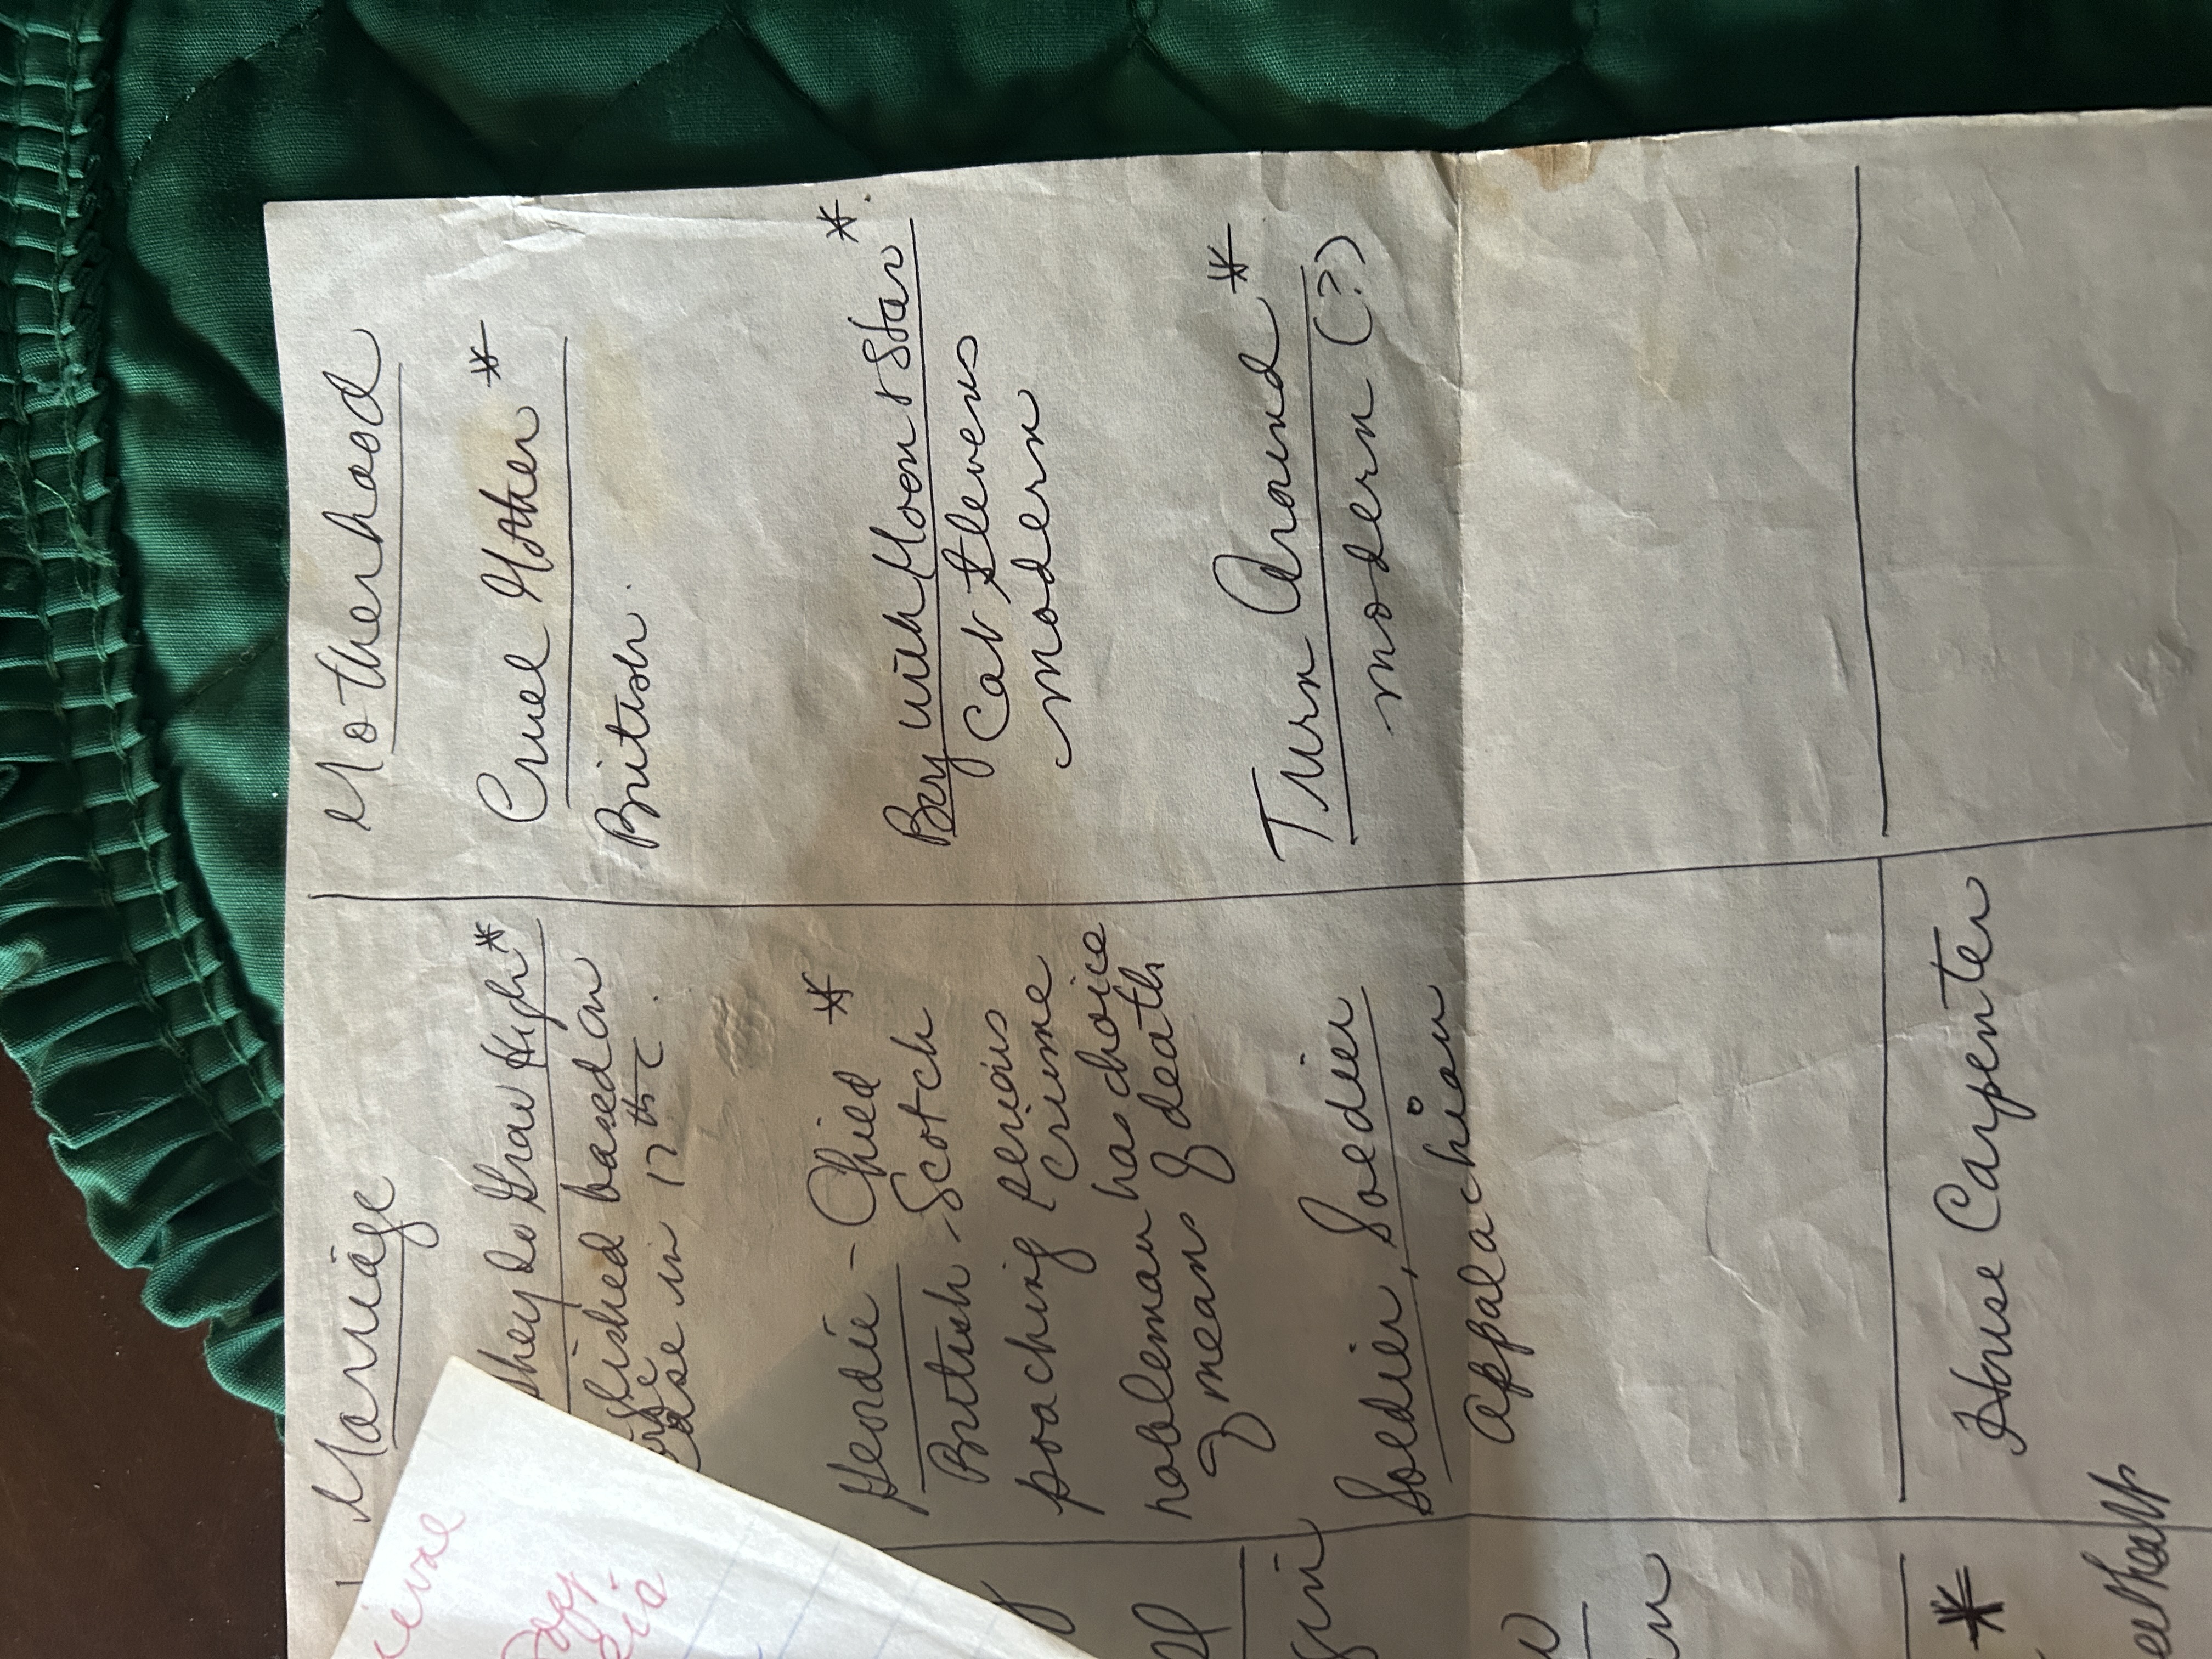 Marriage
they do Grow High *
based on
case in 17th C.
Geordie - Child *
British - Scotch
poaching serious
crime
nobleman has choice
of means of death
Soldier, Soldier
Appalachian
House Carpenter
Motherhood
Cruel Mother *
British.
Boy with Moon & Star *.
Cat Stevens
modern
Turn Around *
modern (?)
*